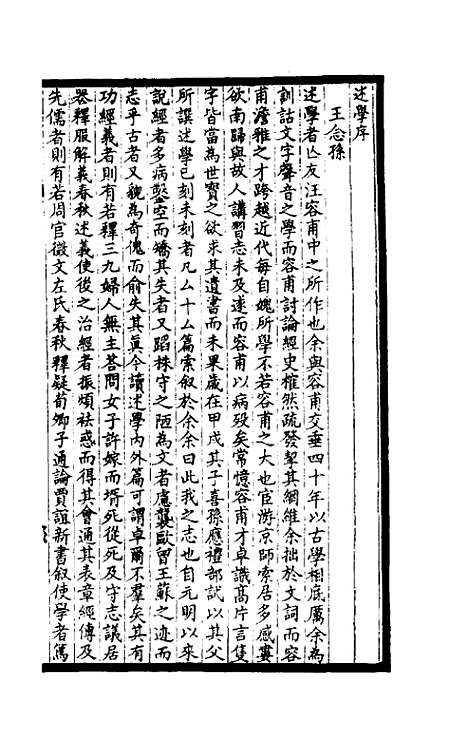 述學序
王念孫
述學者亡友汪容甫中之所作也余與容甫交垂四十年以古學相底厲余為
訓詁文字聲音之學而容甫討論經史榷然疏發挈其綱維余拙於文詞而容
甫澹雅之才跨越近代每自媿所學不若容甫之大也宦游京師索居多感婁
欲南歸與故人講習志未及遂而容甫以病歿矣常憶容甫才卓識高片言隻
字皆當為世寶之欲求其遺書而未果歲在甲戌其子喜孫應禮部試以其父
所譔述學已刻未刻者凡厶十厶篇索叙於余余曰此我之志也自元明以來
說經者多病鑿空而矯其失者又蹈株守之陋為文者慮襲歐曾王蘇之迹而
志乎古者又貌為奇傀而俞失其真今讀述學內外篇可謂卓爾不羣矣其有
功經義者則有若釋三九婦人無主荅問女子許嫁而壻死從死及守志議居
喪釋服解義春秋述義使後之治經者振煩袪惑而得其會通其表章經傳及
先儒者則有若周官徵文左氏春秋釋疑荀卿子通論賈誼新書叙使學者篤